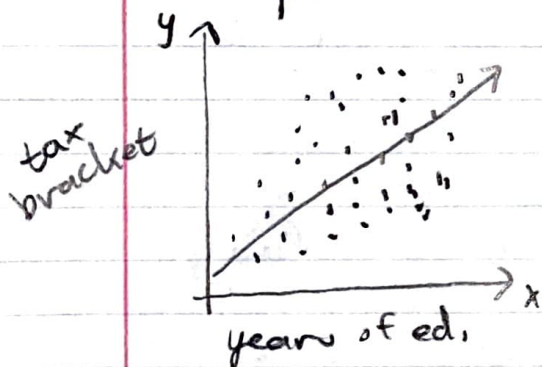 y
tax
bracket
x
years of ed.